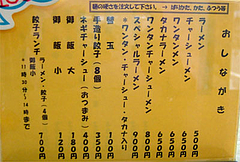 麺の硬さを注文して下さい。→ばりかた、かた、ふつう等
おしながき
ラーメン 500円
チャーシューメン 650円
ワンタンメン 650円
タカナラーメン 600円
ワンタンチャーシューメン 800円
スペシャルラーメン 900円
＊ワンタン・チャーシュー・タカナ入り
替玉 100円
手造り餃子（8個） 400円
ネギチャーシュー（おつまみ） 400円
御飯大 180円
御飯小 120円
餃子ランチ 700円
ラーメン・餃子（4個）
御飯小
＊11時30分〜14時まで